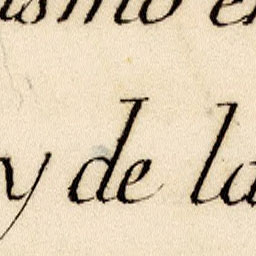 ismo e
y de la